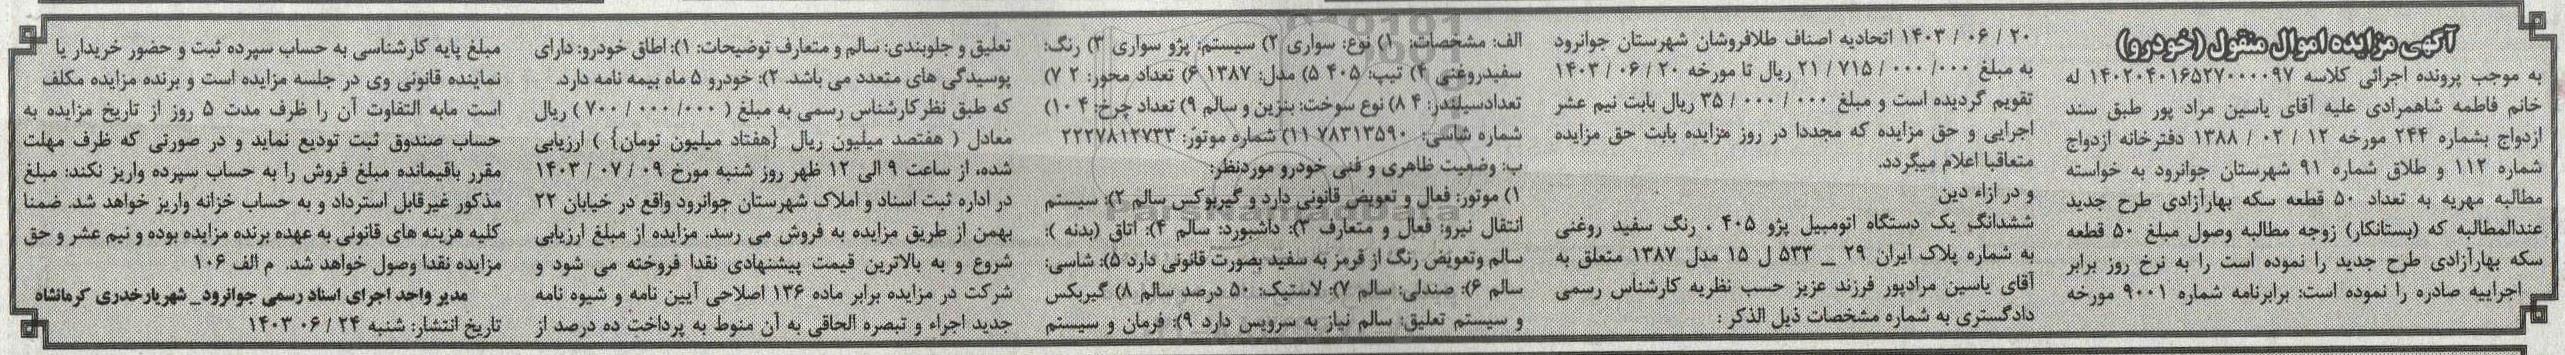 آگهی مزایده اموال منقول (خودرو)
به موجب پرونده اجرائی کلاسه ۱۴۰۲۰۴۰۱۶۵۲۷۰۰۰۰۹۷ له
خانم فاطمه شاهمرادی علیه آقای یاسین مراد پور طبق سند
ازدواج بشماره ۲۴۴ مورخه ۱۲ / ۰۲ / ۱۳۸۸ دفترخانه ازدواج
شماره ۱۱۲ و طلاق شماره ۹۱ شهرستان جوانرود به خواسته
مطالبه مهریه به تعداد ۵۰ قطعه سکه بهارآزادی طرح جدید
عندالمطالبه که (بستانکار) زوجه مطالبه وصول مبلغ ۵۰ قطعه
سکه بهارآزادی طرح جدید را نموده است را به نرخ روز برابر
اجراییه صادره را نموده است: برابرنامه شماره ۹۰۰۱ مورخه
۲۰ / ۰۶ / ۱۴۰۳ اتحادیه اصناف طلافروشان شهرستان جوانرود
به مبلغ ۰۰۰/ ۰۰۰ / ۷۱۵ / ۲۱ ریال تا مورخه ۲۰ / ۰۶ / ۱۴۰۳
تقویم گردیده است و مبلغ ۰۰۰ / ۰۰۰ / ۳۵ ریال بابت نیم عشر
اجرایی و حق مزایده که مجددا در روز مزایده بابت حق مزایده
متعاقبا اعلام میگردد.
و در ازاء دین
ششدانگ یک دستگاه اتومبیل پژو ۴۰۵ ، رنگ سفید روغنی
به شماره پلاک ایران ۲۹ _ ۵۳۳ ل ۱۵ مدل ۱۳۸۷ متعلق به
آقای یاسین مرادپور فرزند عزیز حسب نظریه کارشناس رسمی
دادگستری به شماره مشخصات ذیل الذکر :
الف: مشخصات: ۱) نوع: سواری ۲) سیستم: پژو سواری ۳) رنگ:
سفیدروغنی ۴) تیپ: ۴۰۵ ۵) مدل: ۱۳۸۷ ۶) تعداد محور: ۲ ۷)
تعدادسیلندر: ۴ ۸) نوع سوخت: بنزین و سالم ۹) تعداد چرخ: ۴ ۱۰)
شماره شاسی: ۷۸۳۱۳۵۹۰ ۱۱) شماره موتور: ۲۲۲۷۸۱۲۷۳۳
ب: وضعیت ظاهری و فنی خودرو موردنظر:
۱) موتور: فعال و تعویض قانونی دارد و گیربوکس سالم ۲): سیستم
انتقال نیرو: فعال و متعارف ۳): داشبورد: سالم ۴): اتاق (بدنه ):
سالم وتعویض رنگ از قرمز به سفید بصورت قانونی دارد ۵): شاسی:
سالم ۶): صندلی: سالم ۷): لاستیک: ۵۰ درصد سالم ۸) گیربکس
و سیستم تعلیق: سالم نیاز به سرویس دارد ۹): فرمان و سیستم
تعلیق و جلوبندی: سالم و متعارف توضیحات: ۱): اطاق خودرو: دارای
پوسیدگی های متعدد می باشد. ۲): خودرو ۵ ماه بیمه نامه دارد.
که طبق نظر کارشناس رسمی به مبلغ ( ۰۰۰/ ۰۰۰ / ۷۰۰ ) ریال
معادل ( هفتصد میلیون ریال {هفتاد میلیون تومان} ) ارزیابی
شده، از ساعت ۹ الی ۱۲ ظهر روز شنبه مورخ ۰۹ / ۰۷ / ۱۴۰۳
در اداره ثبت اسناد و املاک شهرستان جوانرود واقع در خیابان ۲۲
بهمن از طریق مزایده به فروش می رسد. مزایده از مبلغ ارزیابی
شروع و به بالاترین قیمت پیشنهادی نقدا فروخته می شود و
شرکت در مزایده برابر ماده ۱۳۶ اصلاحی آیین نامه و شیوه نامه
جدید اجراء و تبصره الحاقی به آن منوط به پرداخت ده درصد از
مبلغ پایه کارشناسی به حساب سپرده ثبت و حضور خریدار یا
نماینده قانونی وی در جلسه مزایده است و برنده مزایده مکلف
است مابه التفاوت آن را ظرف مدت ۵ روز از تاریخ مزایده به
حساب صندوق ثبت تودیع نماید و در صورتی که ظرف مهلت
مقرر باقیمانده مبلغ فروش را به حساب سپرده واریز نکند: مبلغ
مذکور غیرقابل استرداد و به حساب خزانه واریز خواهد شد. ضمنا
کلیه هزینه های قانونی به عهده برنده مزایده بوده و نیم عشر و حق
مزایده نقدا وصول خواهد شد. م الف ۱۰۶
مدیر واحد اجرای اسناد رسمی جوانرود_ شهریارخدری کرمانشاه
تاریخ انتشار: شنبه ۲۴ / ۰۶ ۱۴۰۳